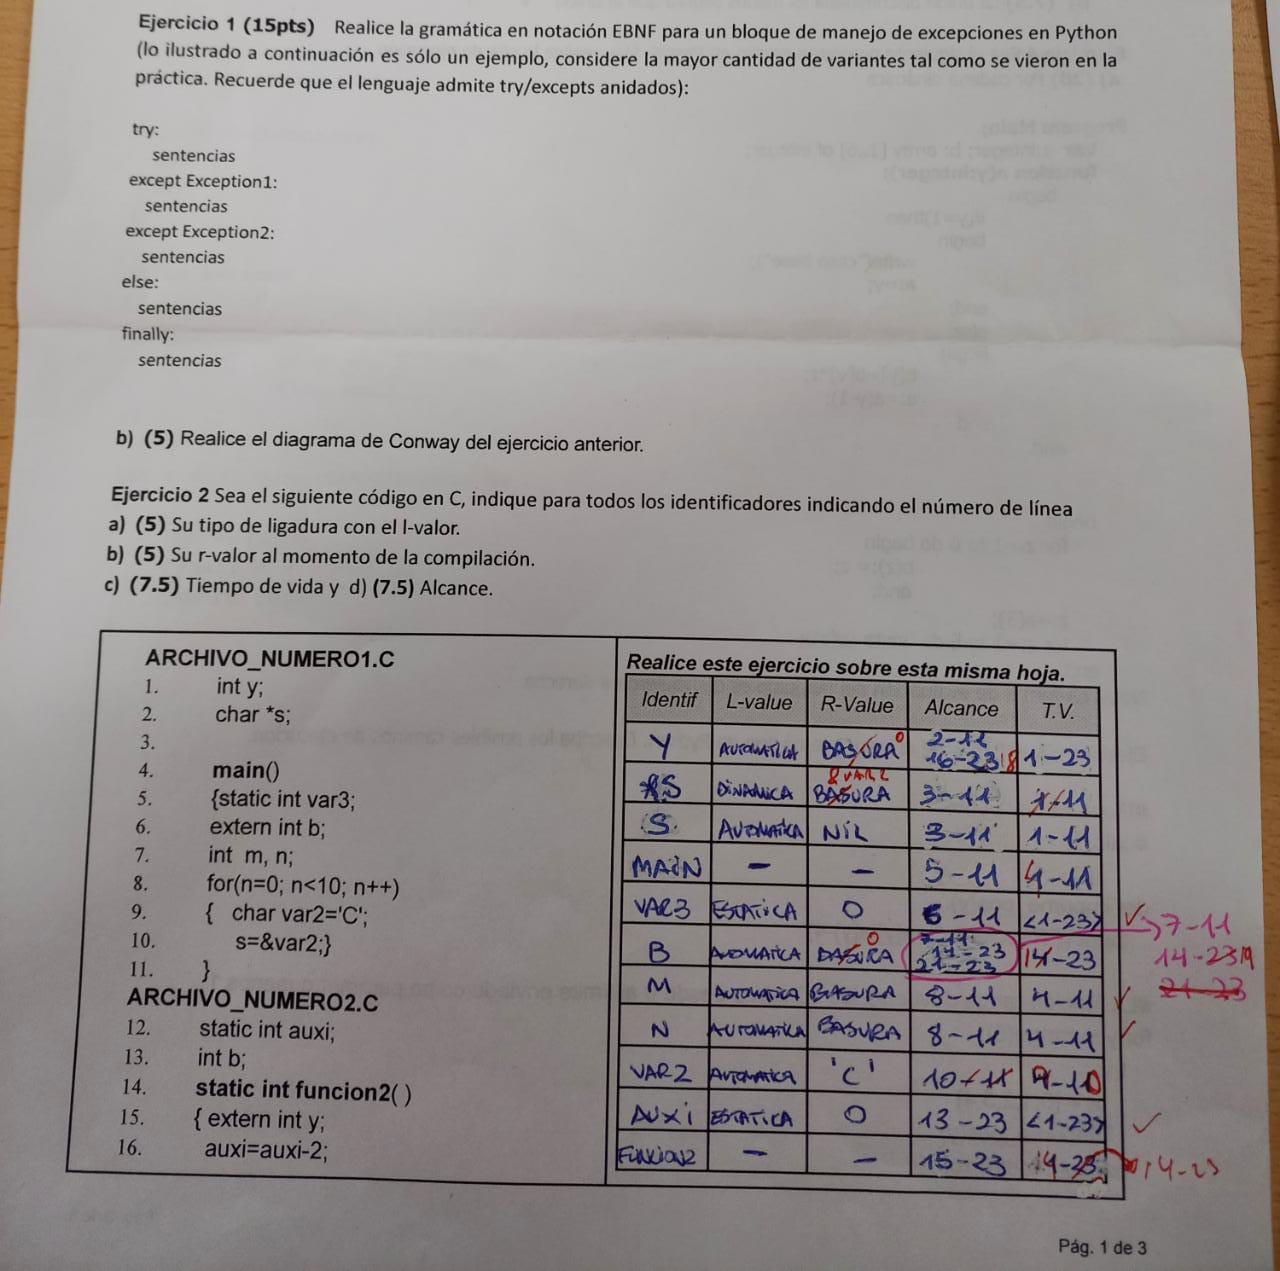 Ejercicio 1 (15pts) Realice la gramática en notación EBNF para un bloque de manejo de excepciones en Python
(lo ilustrado a continuación es sólo un ejemplo, considere la mayor cantidad de variantes tal como se vieron en la
práctica. Recuerde que el lenguaje admite try/excepts anidados):
try:
sentencias
except Exception1:
sentencias
except Exception2:
sentencias
else:
sentencias
finally:
sentencias
b) (5) Realice el diagrama de Conway del ejercicio anterior.
Ejercicio 2 Sea el siguiente código en C, indique para todos los identificadores indicando el número de línea
a) (5) Su tipo de ligadura con el l-valor.
b) (5) Su r-valor al momento de la compilación.
c) (7.5) Tiempo de vida y d) (7.5) Alcance.
ARCHIVO_NUMERO1.C
1. int y;
2. char *s;
3.
4. main()
5. {static int var3;
6. extern int b;
7. int m, n;
8. for(n=0; n<10; n++)
9. { char var2='C';
10. s=&var2;}
11. }
ARCHIVO_NUMERO2.C
12. static int auxi;
13. int b;
14. static int funcion2( )
15. { extern int y;
16. auxi=auxi-2;
Realice este ejercicio sobre esta misma hoja.
Identif L-value R-Value Alcance T.V.
Y AUTOMATICA BASURA 0 2-11 16-23 1-23
*S DINAMICA BASURA 3-11 1-11
S AUTOMATICA NIL 3-11 1-11
MAIN - - 5-11 4-11
VAR3 ESTATICA 0 6-11 <1-23> 7-11
B AUTOMATICA BASURA 0 7-11 14-23 21-23 -23 14-23
M AUTOMATICA BASURA 8-11 4-11 21-23
N AUTOMATICA BASURA 8-11 4-11
VAR2 AUTOMATICA 'C' 10-11 9-10
AUXI ESTATICA 0 13-23 <1-23>
FUNCION2 - - 15-23 14-23 14-23
Pág. 1 de 3